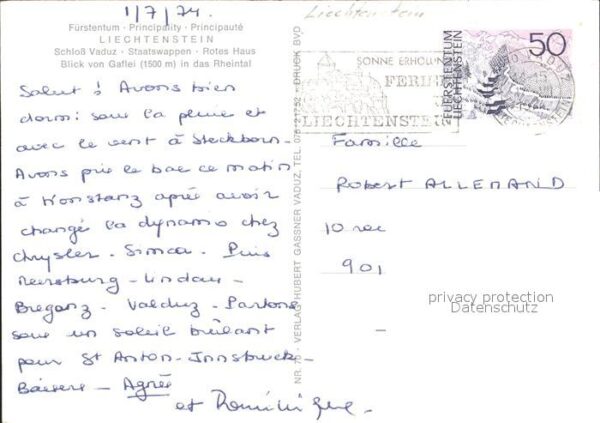 1/7/74.
Liechtenstein
Fürstentum · Principality · Principauté
LIECHTENSTEIN
Schloß Vaduz · Staatswappen · Rotes Haus
Blick von Gaflei (1500 m) in das Rheintal
Salut ! Avons bien
dormi sous la pluie et
avec le vent à Steckborn.
Avons pris le bac ce matin
à Konstanz après avoir
changé la dynamo chez
Chrysler - Simca. Puis
Meersburg - Lindau -
Bregenz - Valduz - Partons
sous un soleil brûlant
pour St Anton - Innsbruck -
Bavière - Agnès
et Dominique.
NR. 70 · VERLAG HUBERT GASSNER VADUZ, TEL. 075 21752 · DRUCK BVD
SONNE ERHOLUNG
FERIEN
LIECHTENSTEIN
50
FÜRSTENTUM
LIECHTENSTEIN
Famille
Robert ALLEMAND
10 rue
901
privacy protection
Datenschutz